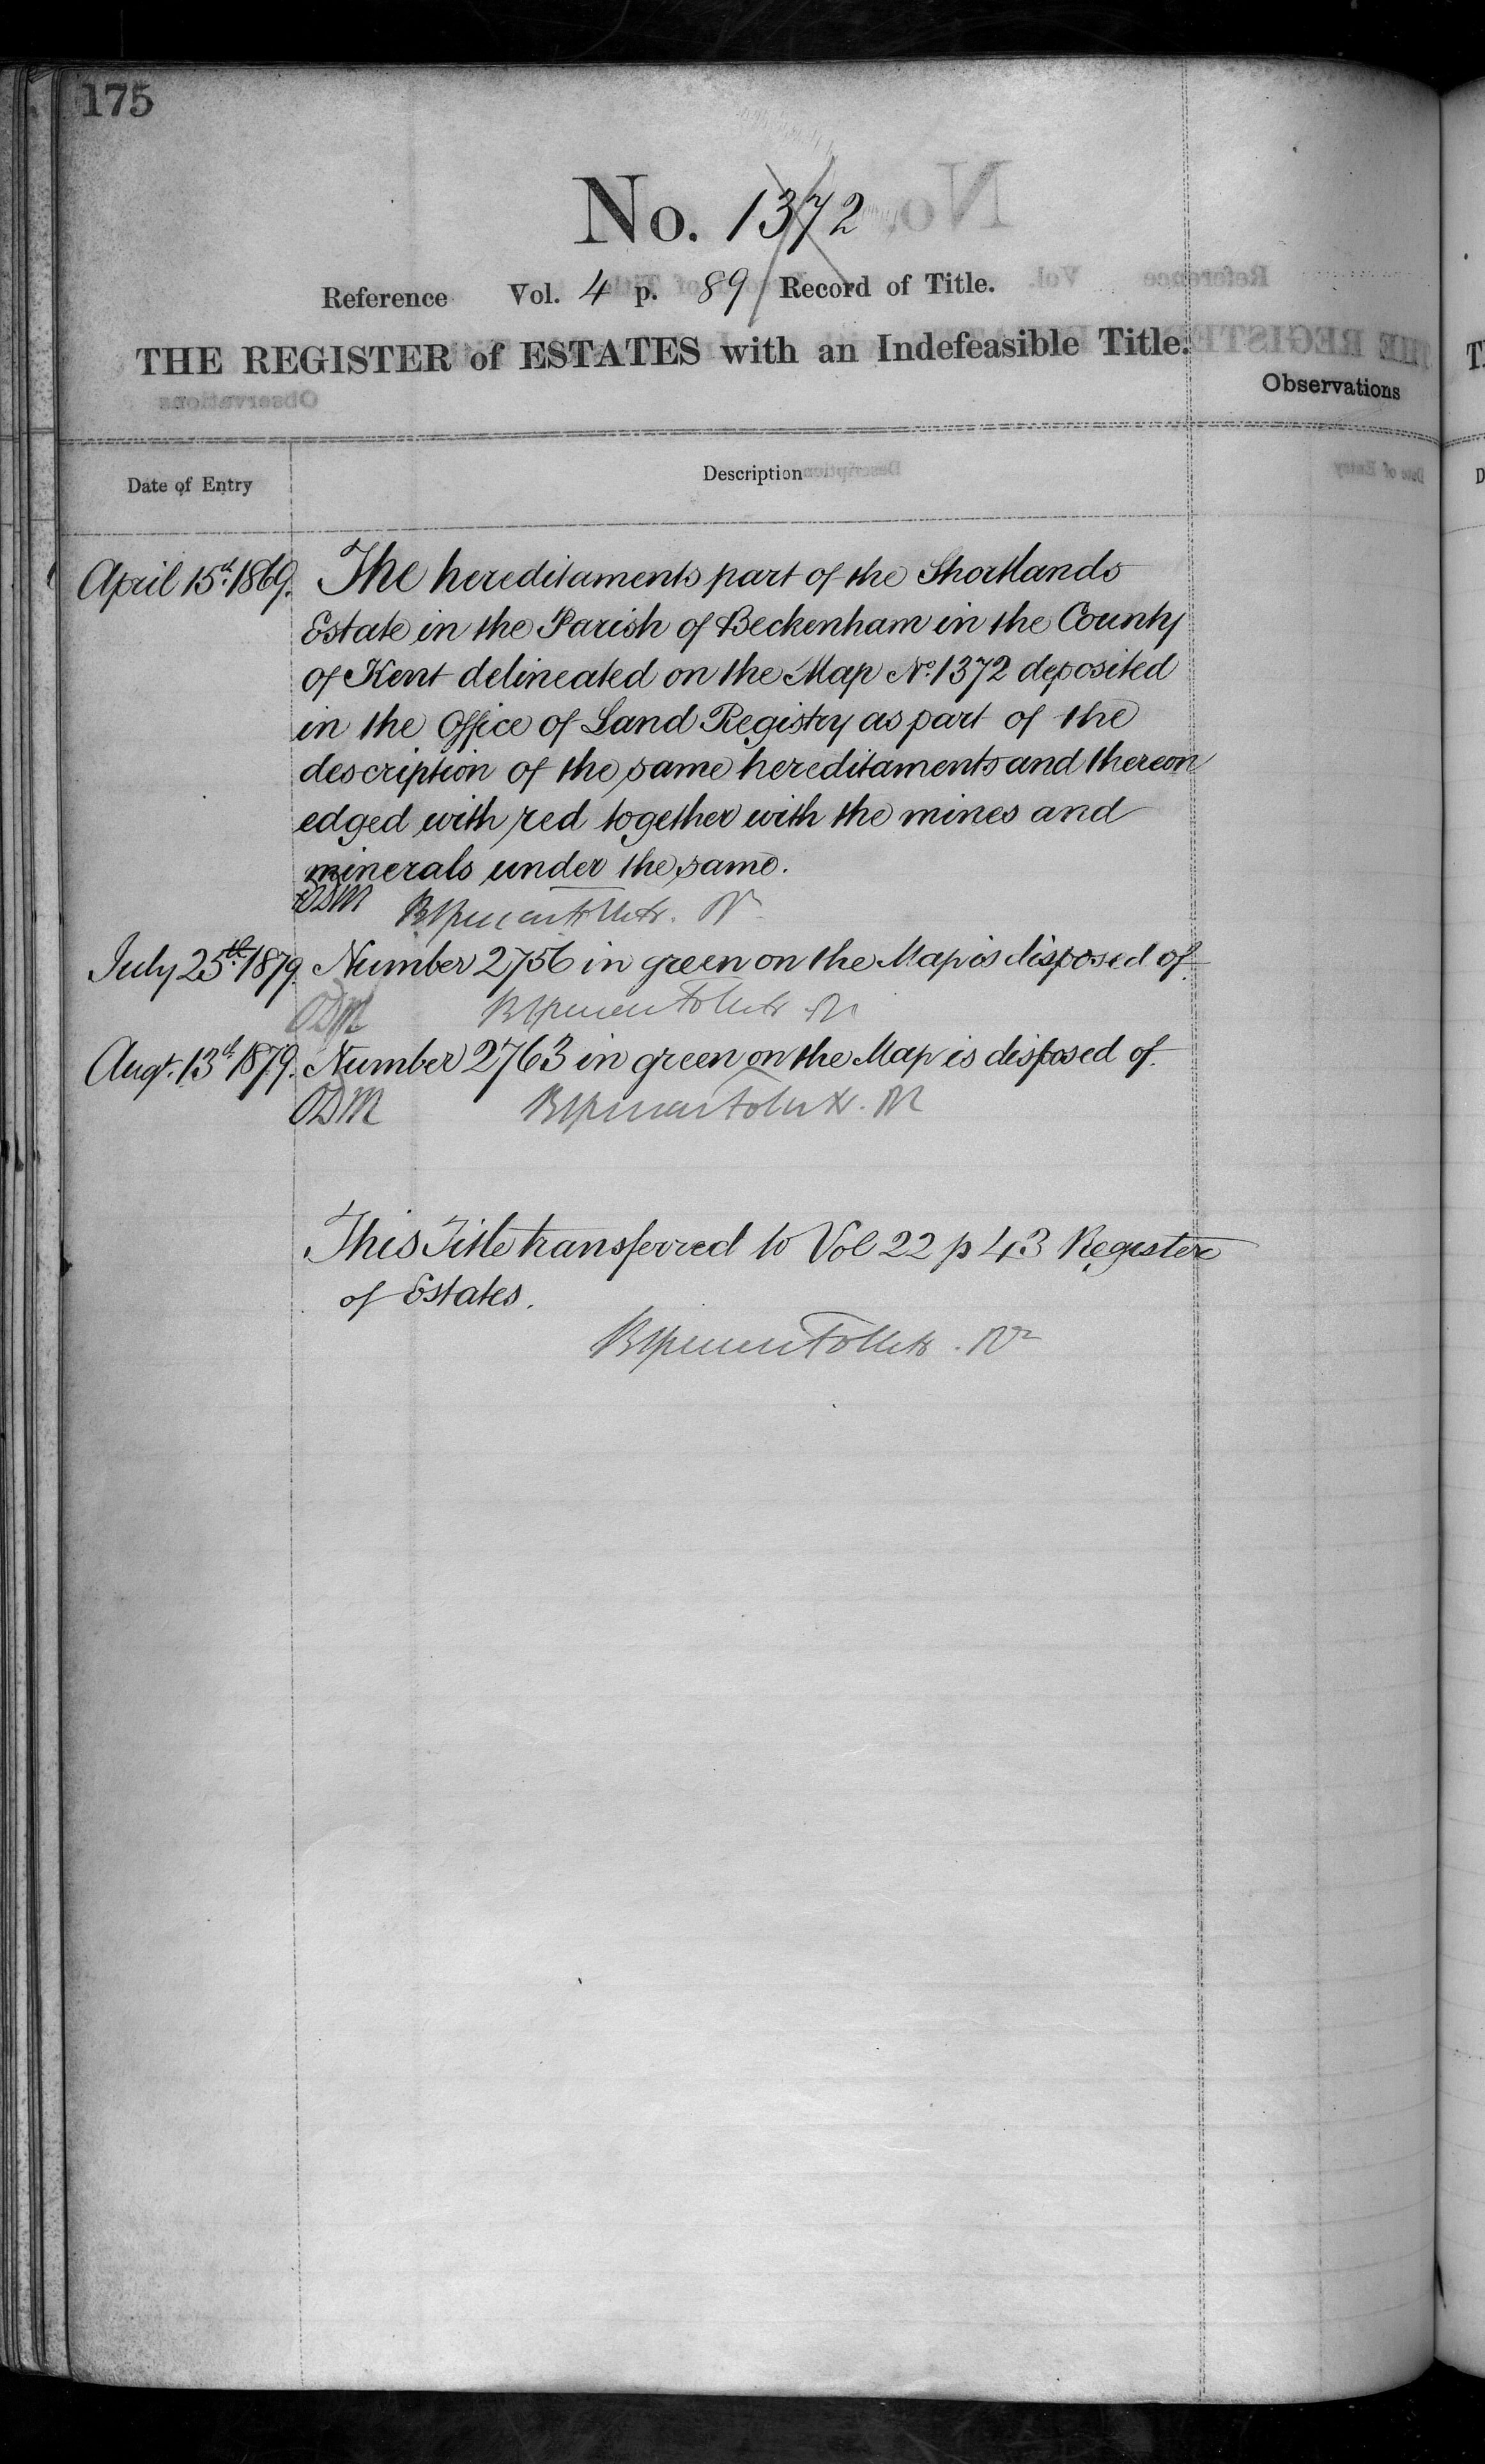 175
No. 1372
Reference Vol. 4 p. 89 Record of Title.
THE REGISTER of ESTATES with an Indefeasible Title.
Observations
Date of Entry
Description
April 15th 1869. The hereditaments part of the Shortlands
Estate in the Parish of Beckenham in the County
of Kent delineated on the Map No. 1372 deposited
in the Office of Land Registry as part of the
description of the same hereditaments and thereon
edged with red together with the mines and
minerals under the same.
July 25th 1879. Number 2756 in green on the Map is disposed of.
ODM
Augt. 13th 1879. Number 2763 in green on the Map is disposed of.
ODM
This Title transferred to Vol 22 p 43 Register
of Estates.